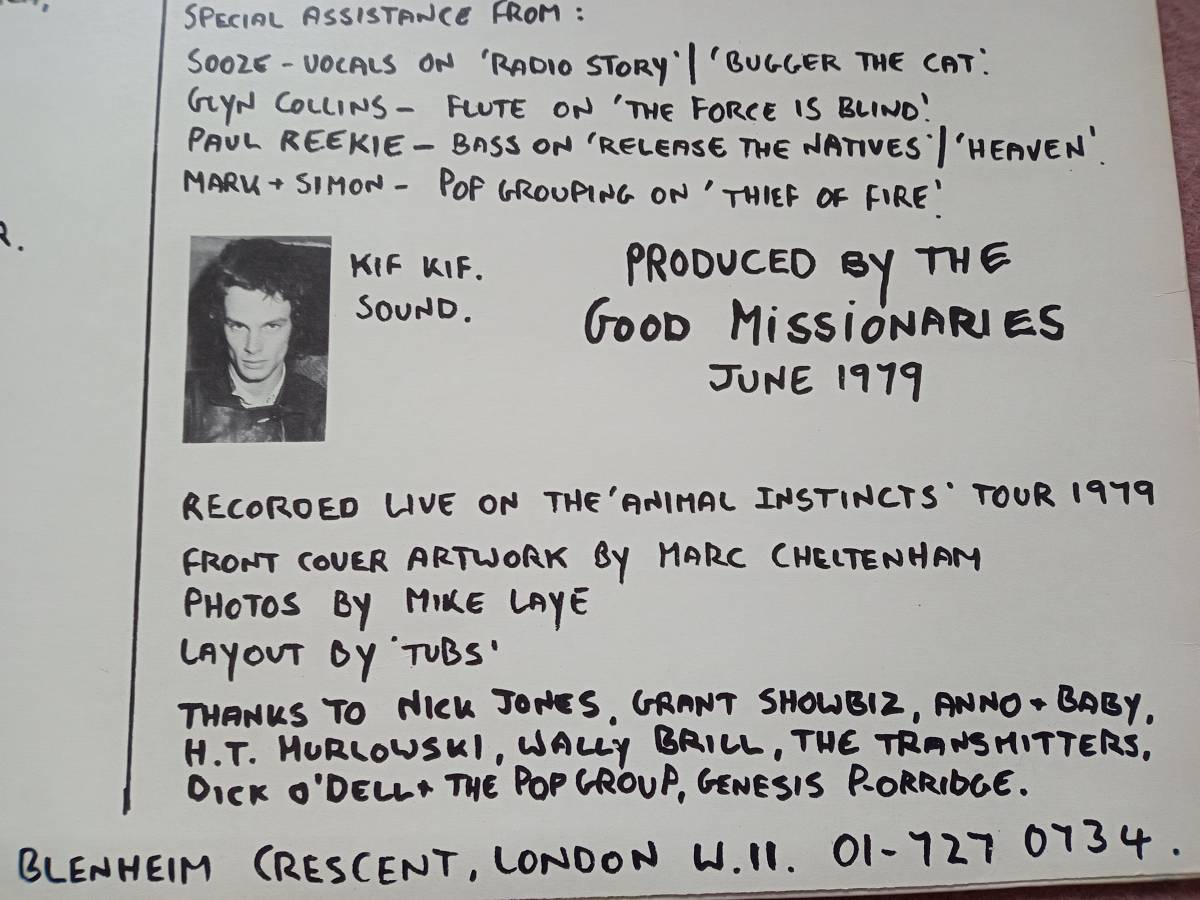 SPECIAL ASSISTANCE FROM :
SOOZE - VOCALS ON 'RADIO STORY' / 'BUGGER THE CAT'.
GLYN COLLINS - FLUTE ON 'THE FORCE IS BLIND'.
PAUL REEKIE - BASS ON 'RELEASE THE NATIVES' / 'HEAVEN'.
MARK + SIMON - POP GROUPING ON 'THIEF OF FIRE'.
R.
KIF KIF.
SOUND.
PRODUCED BY THE
GOOD MISSIONARIES
JUNE 1979
RECORDED LIVE ON THE 'ANIMAL INSTINCTS' TOUR 1979
FRONT COVER ARTWORK BY MARC CHELTENHAM
PHOTOS BY MIKE LAYE
LAYOUT BY 'TUBS'
THANKS TO NICK JONES, GRANT SHOWBIZ, ANNO + BABY,
H.T. MURLOWSKI, WALLY BRILL, THE TRANSMITTERS,
DICK O'DELL + THE POP GROUP, GENESIS P-ORRIDGE.
BLENHEIM CRESCENT, LONDON W.11. 01-727 0734.